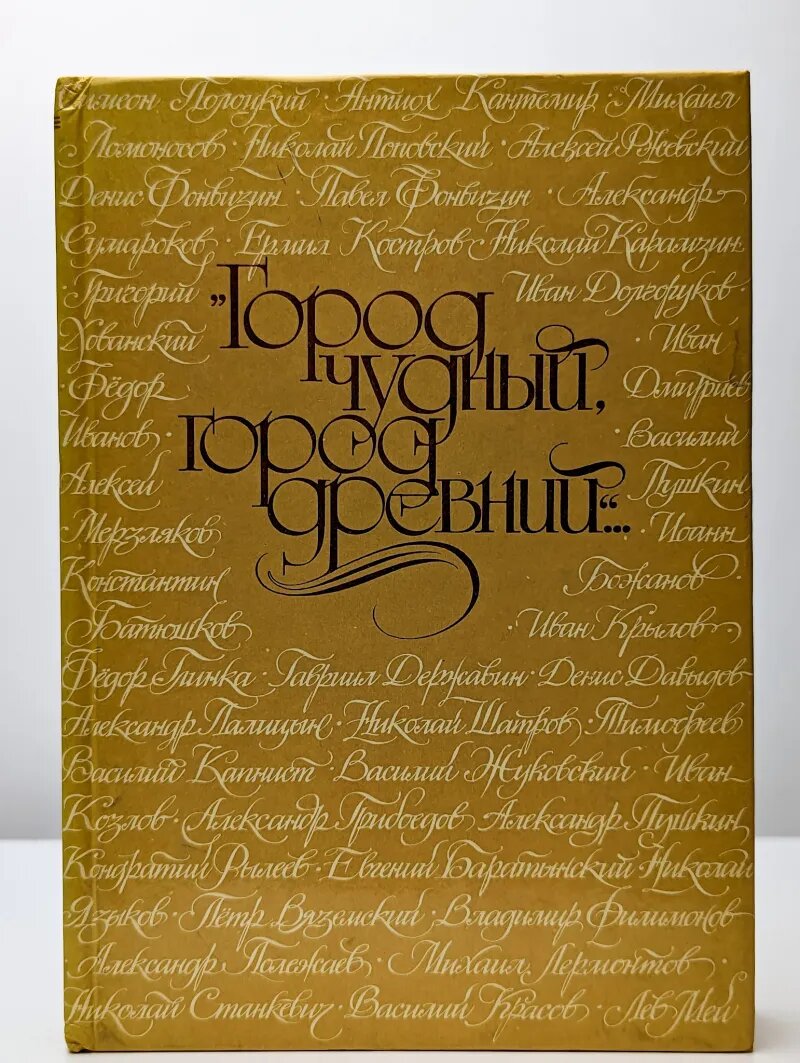 Симеон Полоцкий · Антиох Кантемир · Михаил
Ломоносов · Николай Поповский · Алексей Ржевский
Денис Фонвизин · Павел Фонвизин · Александр
Сумароков · Ермил Костров · Николай Карамзин
· Григорий Иван Долгоруков ·
Хованский · Иван
· Фёдор Дмитриев
Иванов · · Василий
Алексей Пушкин
Мерзляков · Иоанн
Константин Божанов ·
Батюшков Иван Крылов ·
Фёдор Глинка · Гавриил Державин · Денис Давыдов
Александр Палицын · Николай Шатров · Тимофеев
Василий Капнист · Василий Жуковский · Иван
Козлов · Александр Грибоедов · Александр Пушкин
Кондратий Рылеев · Евгений Баратынский · Николай
Языков · Пётр Вяземский · Владимир Филимонов
· Александр Полежаев · Михаил Лермонтов ·
Николай Станкевич · Василий Красов · Лев Мей
„Город
чудный,
город
древний“...